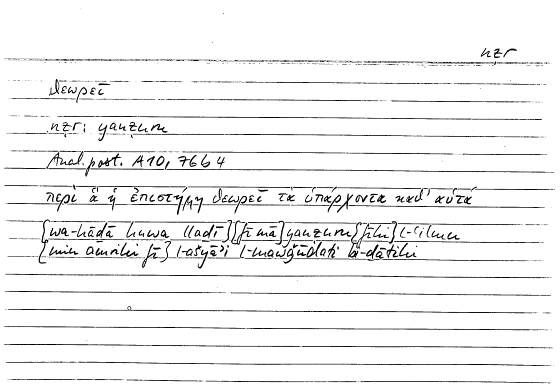 nẓr
θεωρεῖ
nẓr: yanẓuru
Anal. post. A 10, 76b4
περὶ ἃ ἡ ἐπιστήμη θεωρεῖ τὰ ὑπάρχοντα καθ' αὑτά
{wa-hāḏā huwa llaḏī}[fī mā] yanẓuru {fīhi} l-ʿilmu
{min amrihi fī} l-ašyāʾi l-mawǧūdati bi-ḏātihi